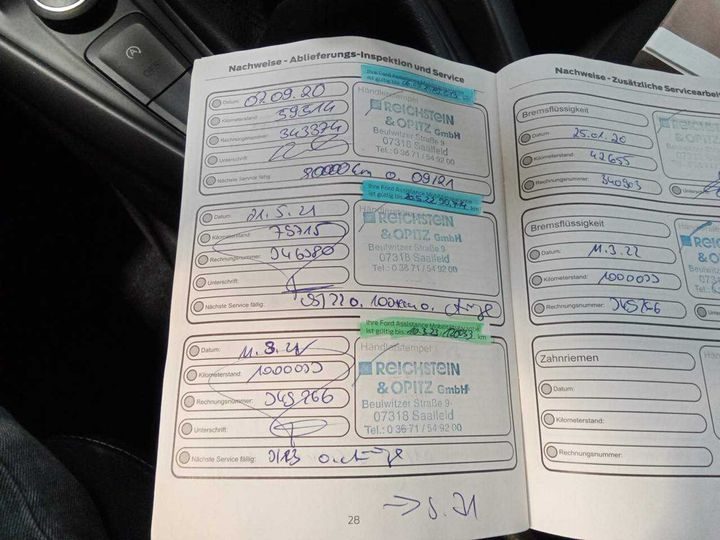 Nachweise - Ablieferungs-Inspektion und Service
Ihre Ford Assistance
ist gültig bis: km
Datum: 02.09.20
Kilometerstand: 59314
Rechnungsnummer: 343374
Unterschrift:
Nächste Service fällig: 80000 km o. 09/21
Händlerstempel
REICHSTEIN
& OPITZ GmbH
Beulwitzer Straße 9
07318 Saalfeld
Tel.: 0 36 71 / 54 92 00
Ihre Ford Assistance
ist gültig bis: km
Datum: 21.5.21
Kilometerstand: 75715
Rechnungsnummer: 346380
Unterschrift:
Nächste Service fällig:
REICHSTEIN
& OPITZ GmbH
Beulwitzer Straße 9
07318 Saalfeld
Tel.: 0 36 71 / 54 92 00
Ihre Ford Assistance
ist gültig bis: km
Datum:
Kilometerstand:
Rechnungsnummer: 349766
Unterschrift:
Nächste Service fällig:
Händlerstempel
REICHSTEIN
& OPITZ GmbH
Beulwitzer Straße 9
07318 Saalfeld
Tel.: 0 36 71 / 54 92 00
28
Nachweise - Zusätzliche Servicearbei
Bremsflüssigkeit
Datum: 25.01.20
Kilometerstand: 42655
Rechnungsnummer: 340903
Bremsflüssigkeit
Datum: 11.3.22
Kilometerstand:
Rechnungsnummer:
Zahnriemen
Datum:
Kilometerstand:
Rechnungsnummer: